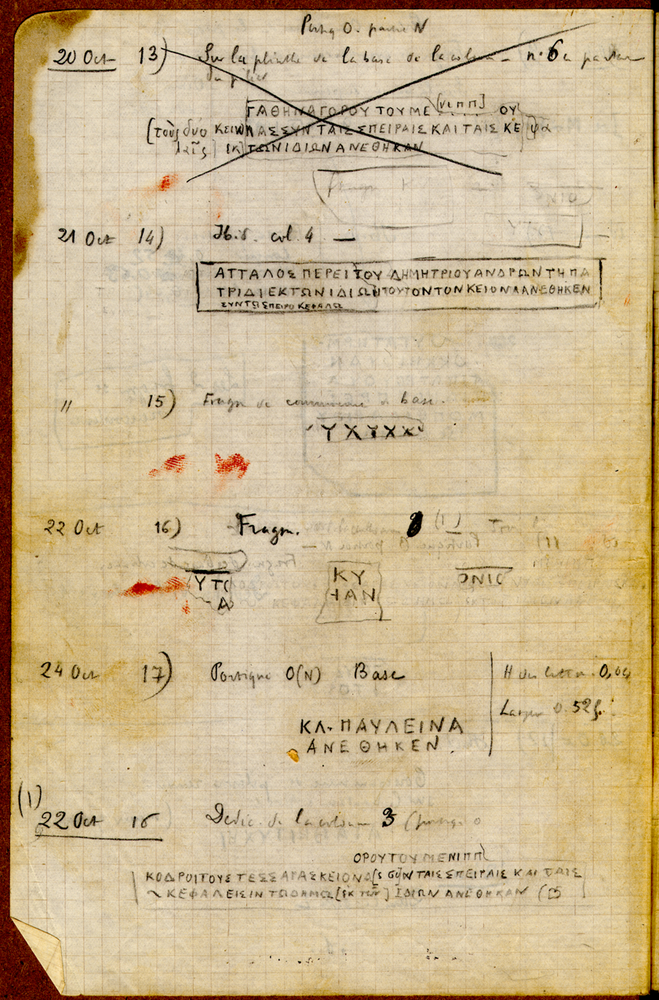 Portq O. partie N
20 Oct 13) Sur la plinthe de la base de la colonne – n° 6 a partir
du pilier
ΓΑΘΗΝΑΓΟΡΟΥ ΤΟΥ ΜΕ [νιππ] ΟΥ
[τοὺς δύο ΚΕΙΟΝΑΣ ΣΥΝ ΤΑΙΣ ΣΠΕΙΡΑΙΣ ΚΑΙ ΤΑΙΣ ΚΕ[φα
λαῖς] [ἐκ] ΤΩΝ ΙΔΙΩΝ ΑΝΕΘΗΚΑΝ
21 Oct 14) Ibid. col. 4 —
ΑΤΤΑΛΟΣ ΠΕΡΕΙΤΟΥ ΔΗΜΗΤΡΙΟΥ ΑΝΔΡΩΝ ΤΗ ΠΑ
ΤΡΙΔΙ ΕΚ ΤΩΝ ΙΔΙΩΝ ΤΟΥΤΟΝ ΤΟΝ ΚΕΙΟΝΑ ΑΝΕΘΗΚΕΝ
ΣΥΝ ΤΩ ΣΠΕΙΡΟΚΕΦΑΛΩ
" 15) Fragm de couronnement de base.
ΥΧΥΧΧ
22 Oct 16) Fragm. (1)
ΥΤΟ ΚΥ ΟΝΙΟ
Α ΗΑΝ
24 Oct 17) Portique O(N) Base H des lettres. 0,04
Largeur 0.525
ΚΛ. ΠΑΥΛΕΙΝΑ
ΑΝΕΘΗΚΕΝ.
(1)
22 Oct 16 Dédic. de la colonne 3
ΟΡΟΥ ΤΟΥ ΜΕΝΙΠΠ
ΚΟΔΡΟΙ ΤΟΥΣ ΤΕΣΣΑΡΑΣ ΚΕΙΟΝΑ[ς σὺν ΤΑΙΣ ΣΠΕΙΡΑΙΣ ΚΑΙ ΤΑΙΣ
ΚΕΦΑΛΕΙΣΙΝ ΤΩ ΔΗΜΩ [ἐκ τῶν] ΙΔΙΩΝ ΑΝΕΘΗΚΑΝ